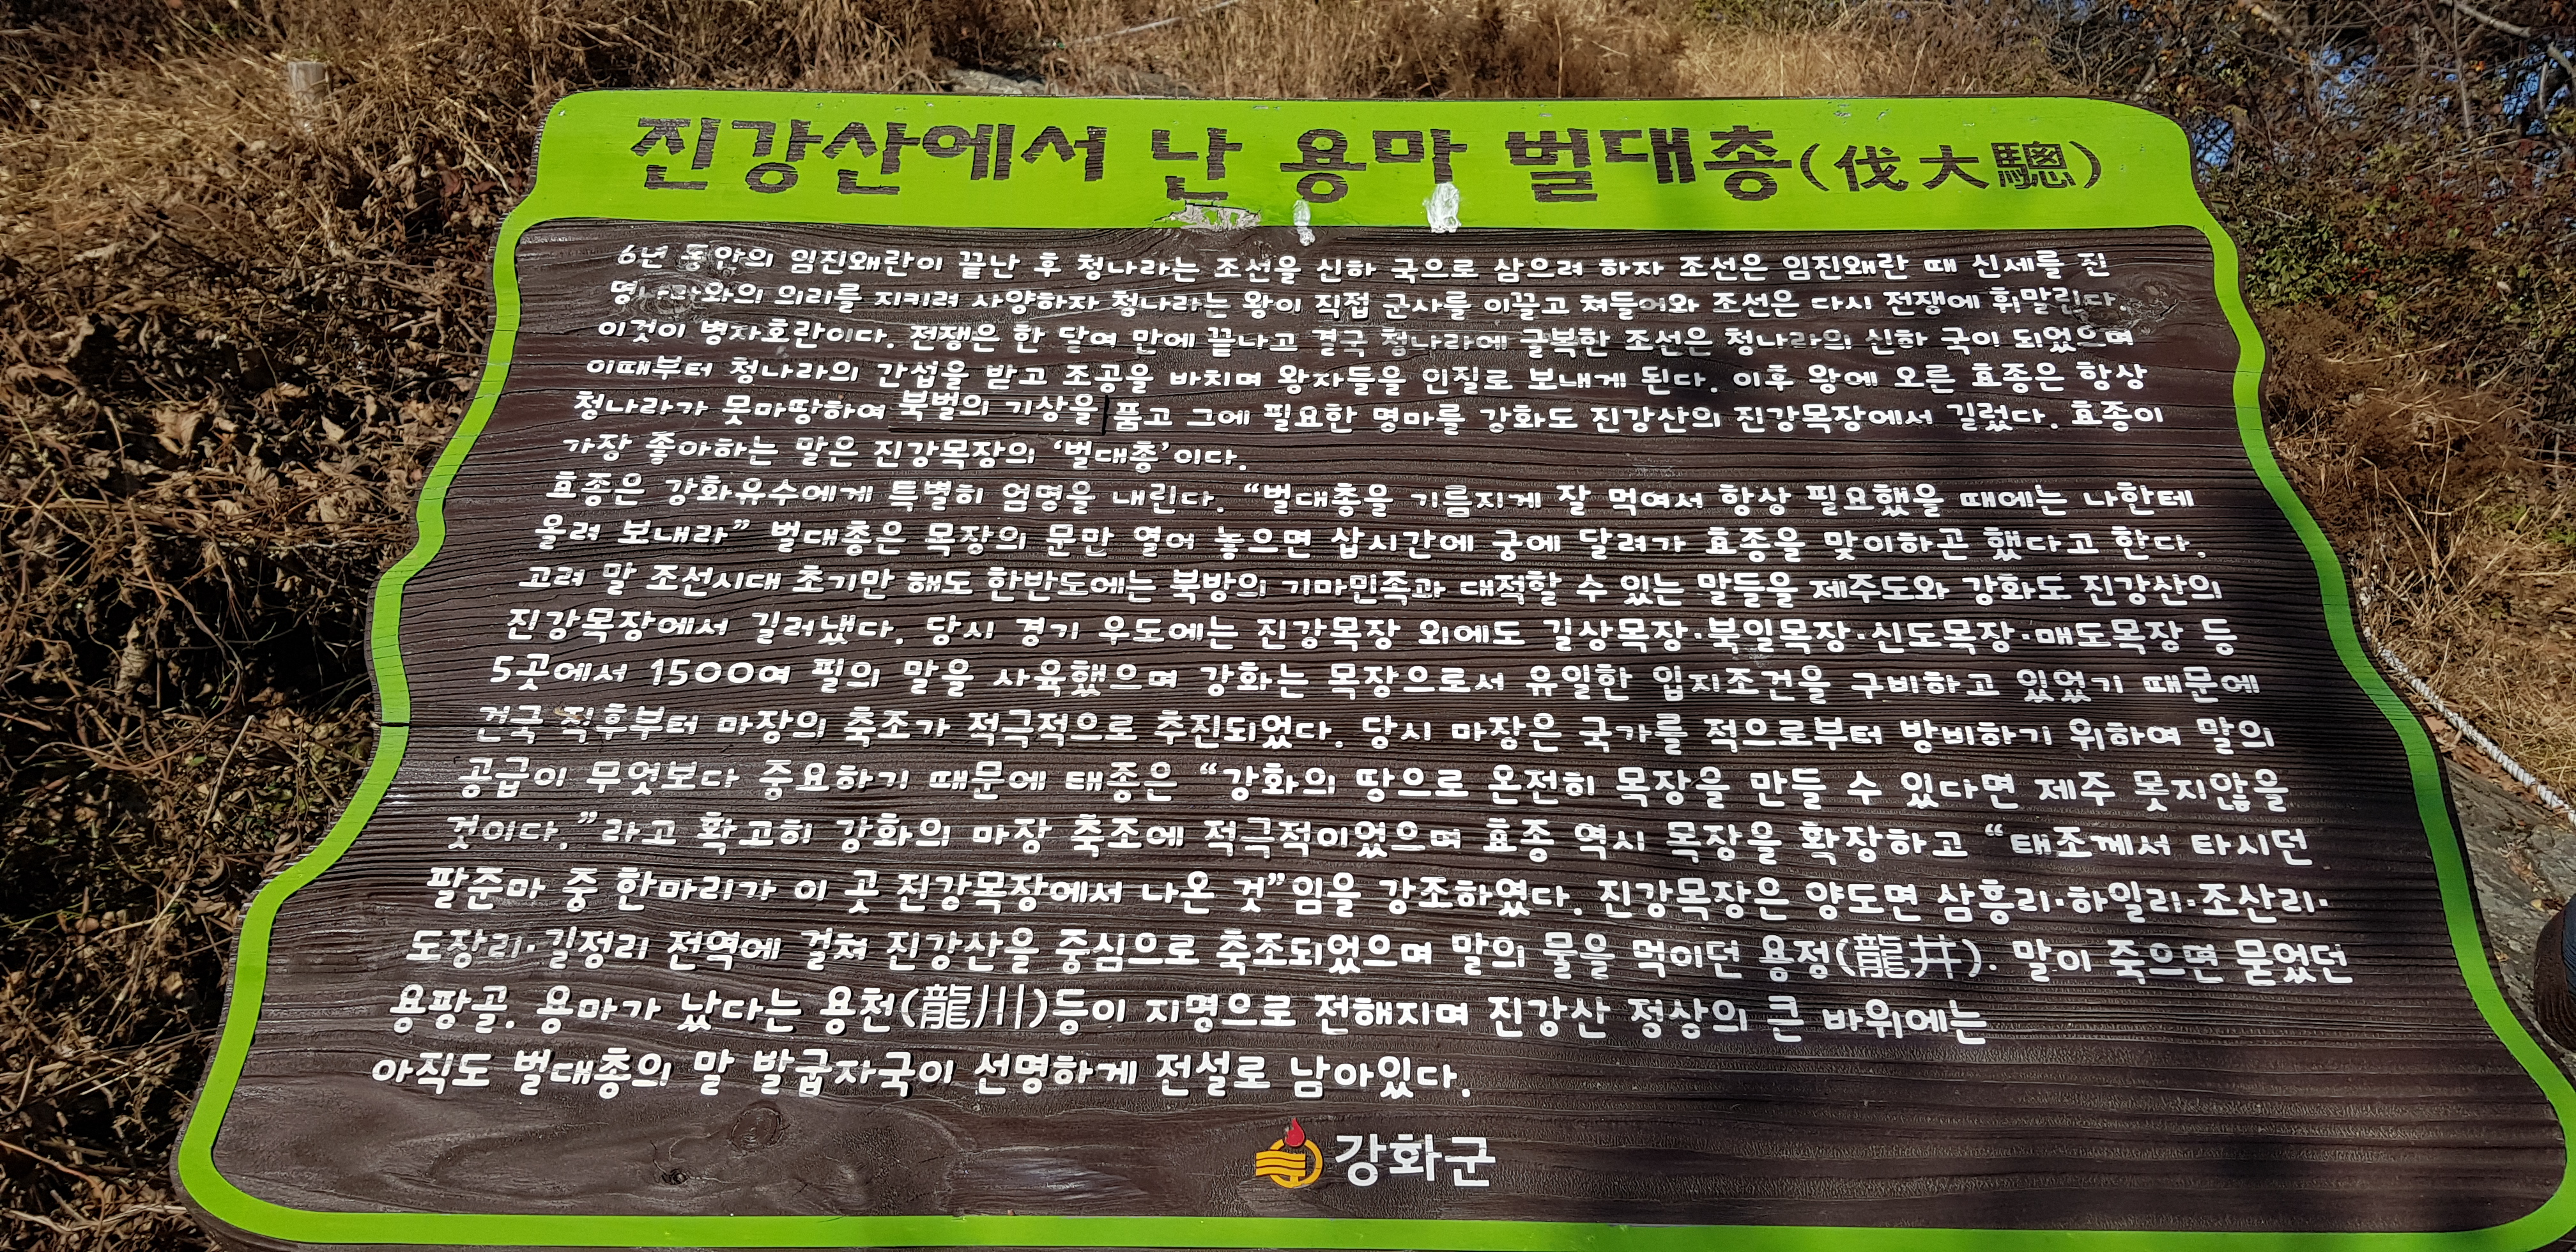 진강산에서 난 용마 벌대총(伐大驄)
6년 동안의 임진왜란이 끝난 후 청나라는 조선을 신하 국으로 삼으려 하자 조선은 임진왜란 때 신세를 진
명나라와의 의리를 지키려 사양하자 청나라는 왕이 직접 군사를 이끌고 쳐들어와 조선은 다시 전쟁에 휘말린다.
이것이 병자호란이다. 전쟁은 한 달여 만에 끝나고 결국 청나라에 굴복한 조선은 청나라의 신하 국이 되었으며
이때부터 청나라의 간섭을 받고 조공을 바치며 왕자들을 인질로 보내게 된다. 이후 왕에 오른 효종은 항상
청나라가 못마땅하여 북벌의 기상을 품고 그에 필요한 명마를 강화도 진강산의 진강목장에서 길렀다. 효종이
가장 좋아하는 말은 진강목장의 ‘벌대총’이다.
효종은 강화유수에게 특별히 엄명을 내린다. “벌대총을 기름지게 잘 먹여서 항상 필요했을 때에는 나한테
올려 보내라” 벌대총은 목장의 문만 열어 놓으면 삽시간에 궁에 달려가 효종을 맞이하곤 했다고 한다.
고려 말 조선시대 초기만 해도 한반도에는 북방의 기마민족과 대적할 수 있는 말들을 제주도와 강화도 진강산의
진강목장에서 길러냈다. 당시 경기 우도에는 진강목장 외에도 길상목장·북일목장·신도목장·매도목장 등
5곳에서 1500여 필의 말을 사육했으며 강화는 목장으로서 유일한 입지조건을 구비하고 있었기 때문에
건국 직후부터 마장의 축조가 적극적으로 추진되었다. 당시 마장은 국가를 적으로부터 방비하기 위하여 말의
공급이 무엇보다 중요하기 때문에 태종은 “강화의 땅으로 온전히 목장을 만들 수 있다면 제주 못지않을
것이다.”라고 확고히 강화의 마장 축조에 적극적이었으며 효종 역시 목장을 확장하고 “태조께서 타시던
팔준마 중 한마리가 이 곳 진강목장에서 나온 것”임을 강조하였다. 진강목장은 양도면 삼흥리·하일리·조산리·
도장리·길정리 전역에 걸쳐 진강산을 중심으로 축조되었으며 말의 물을 먹이던 용정(龍井). 말이 죽으면 묻었던
용팡골. 용마가 났다는 용천(龍川)등이 지명으로 전해지며 진강산 정상의 큰 바위에는
아직도 벌대총의 말 발굽자국이 선명하게 전설로 남아있다.
강화군